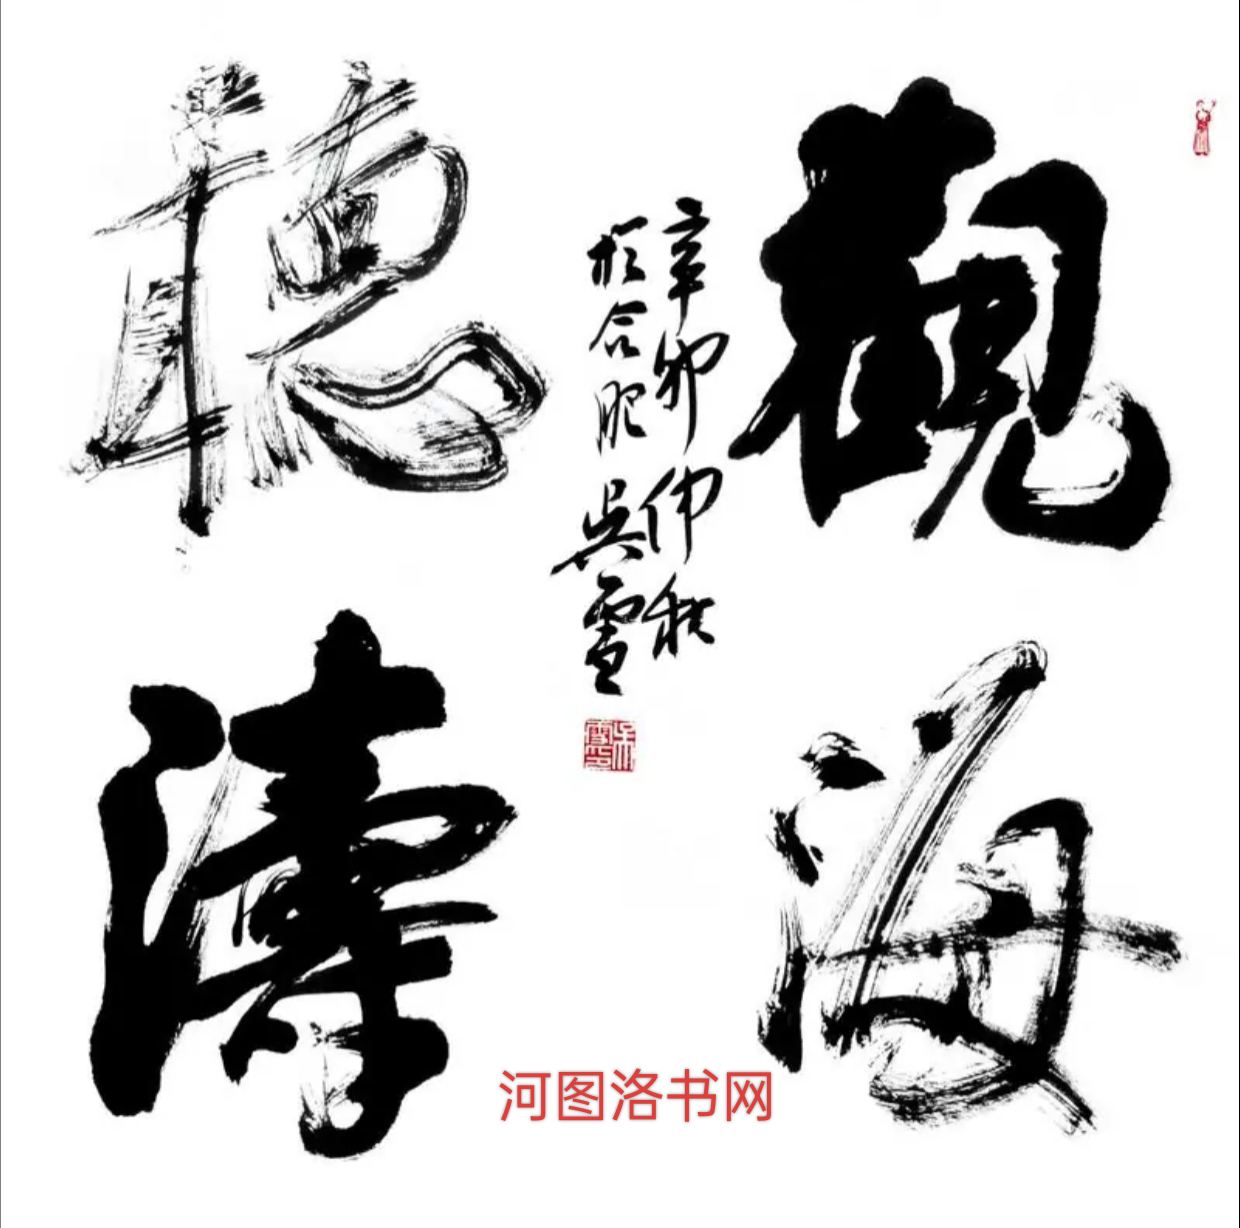 觀海
聽濤
辛卯仲秋
於合肥吳雪
吳雪印
河图洛书网